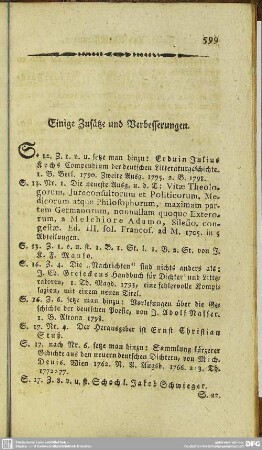 599
Einige Zusätze und Verbesserungen.
S. 12. Z. 1. v. u. setze man hinzu: Erduin Julius
Kochs Compendium der deutschen Litteraturgeschichte.
1. B. Berl. 1790. Zweite Ausg. 1795. 2. B. 1798.
S. 13. Nr. 1. Die neueste Ausg. u. d. T.: Vitæ Theolo-
gorum, Jureconsultorum et Politicorum, Me-
dicorum atque Philosophorum, maximam par-
tem Germanorum, nonnullam quoque Extero-
rum, a Melchiore Adamo, Silesio, con-
gestæ. Ed. III. fol. Francof. ad M. 1705. in 5
Abtheilungen.
S. 13. Z. 1. v. u. st. 1. B. 1. St. l. 1. B. 2. St. von J.
K. F. Manso.
S. 16. Z. 4. Die „Nachrichten“ sind nichts anders als:
J. Ch. Greiseckens Handbuch für Dichter und Litte-
ratoren, 1. Th. Magd. 1793; eine fehlervolle Kompi-
lazion, mit einem neuen Titel.
S. 16. Z. 6. setze man hinzu: Vorlesungen über die Ge-
schichte der deutschen Poesie, von J. Adolf Nasser.
1. B. Altona 1798.
S. 17. Nr. 4. Der Herausgeber ist Ernst Christian
S. 17. nach Nr. 6. setze man hinzu: Sammlung kürzerer
Gedichte aus den neuern deutschen Dichtern, von Mich.
Denis. Wien 1762. N. A. Augsb. 1766. 2. 3. Th.
1772-77.
S. 17. Z. 8. v. u. st. Schoch l. Jakob Schwieger.
S. 22.